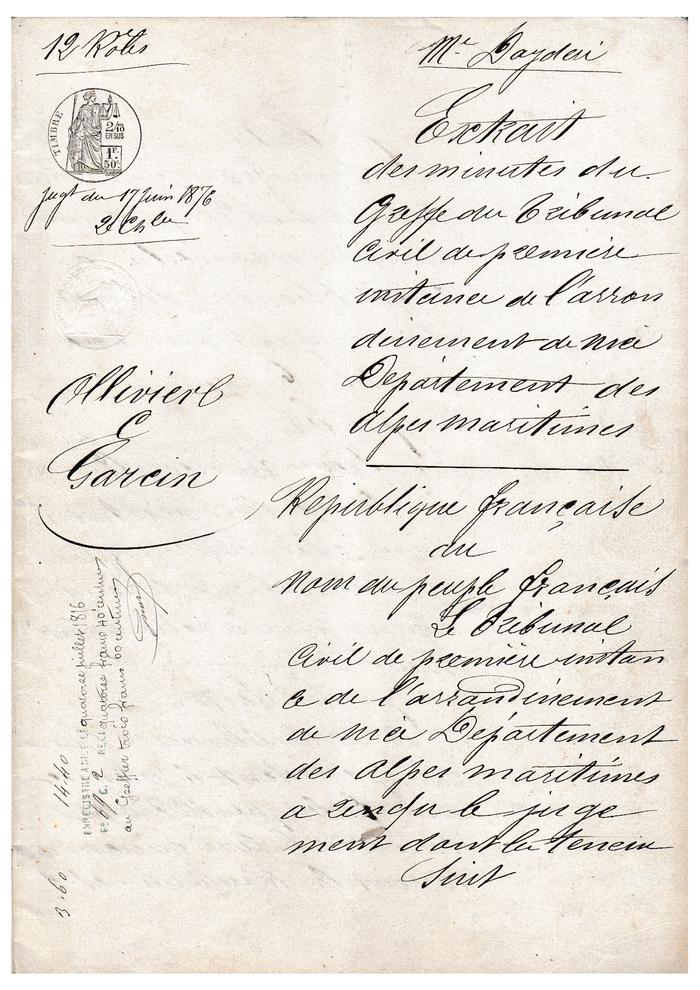 12 Rôles
Me
TIMBRE
2/10
EN SUS
1F.
50c
Jugt du 17 Juin 1876
2e Ch
Ollivier
C
Garcin
Extrait
des minutes du
Greffe du Tribunal
Civil de première
instance de l'arron
dissement de Nice
Département des
Alpes maritimes
République française
au
nom du peuple français
Le Tribunal
Civil de première instan
ce de l'arrondissement
de Nice Département
des Alpes maritimes
a rendu le juge
ment dont la teneur
suit
ENREGISTRÉ A NICE LE quatorze juillet 1876
F° 69 C. 2 REÇU quatorze francs 40 centimes
au Greffier trois francs 60 centimes
14.40
3.60